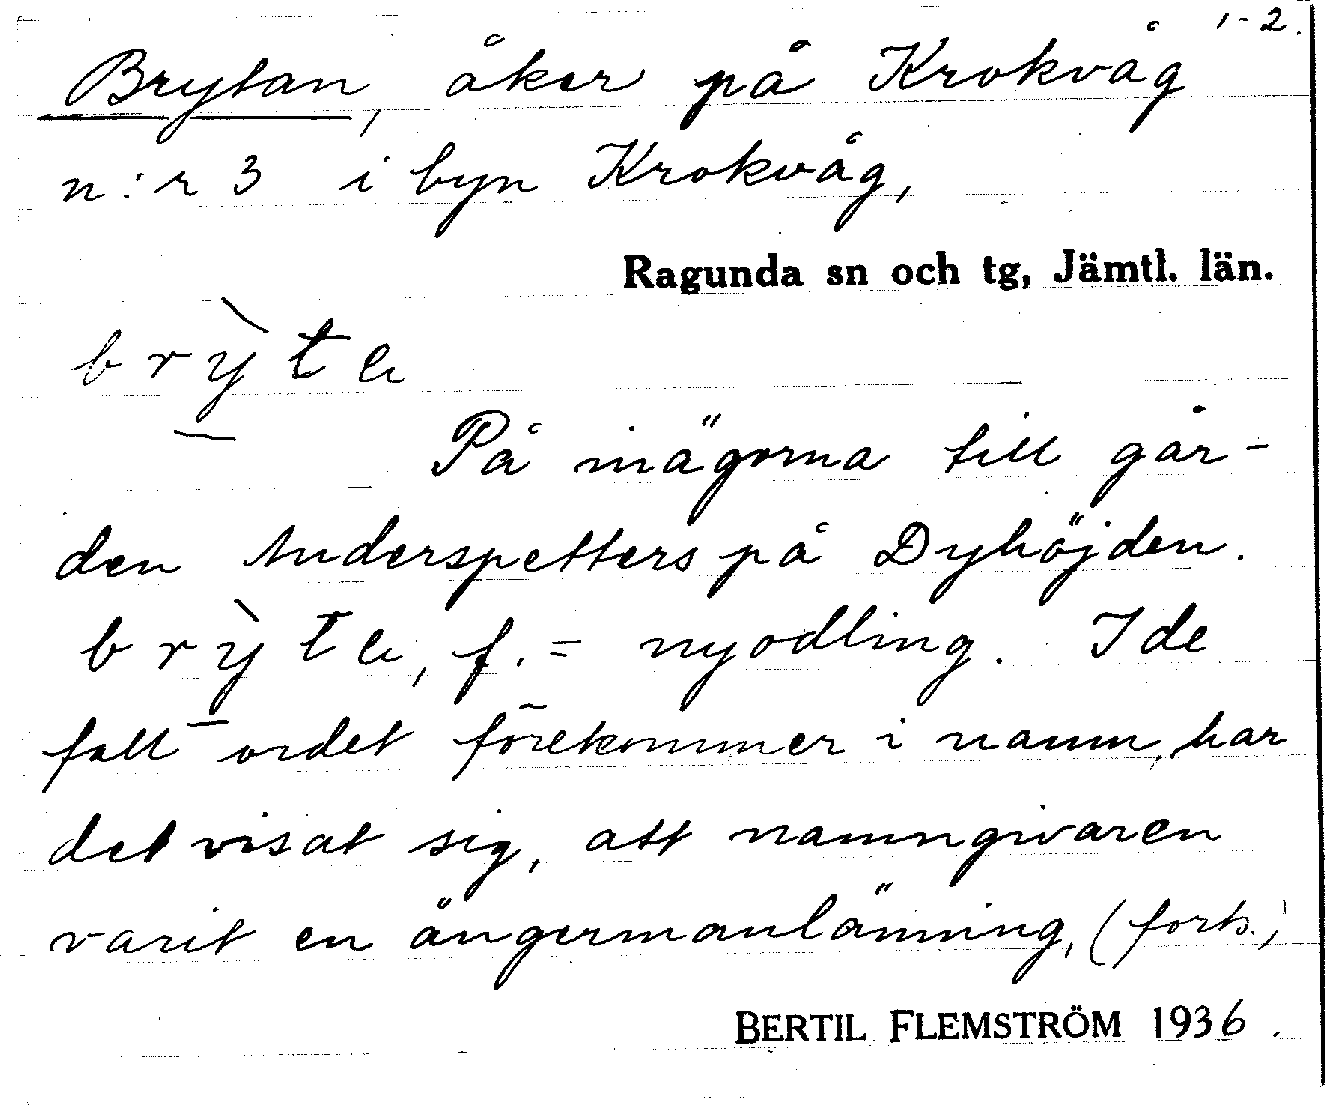 1-2.
Brytan, åker på Krokvåg
n:r 3 i byn Krokvåg,
Ragunda sn och tg, Jämtl. län.
brỳta
På inägorna till går-
den Anderspetters på Dyhöjden.
brỳta, f. = nyodling. I de
fall ordet förekommer i namn, har
det visat sig, att namngivaren
varit en ångermanlänning, (forts.)
BERTIL FLEMSTRÖM 1936.